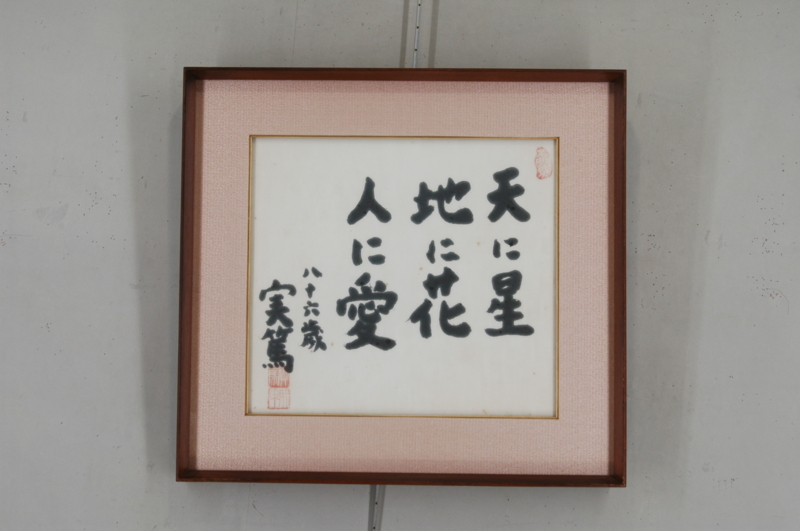 天に星
地に花
人に愛
八十六歳
実篤